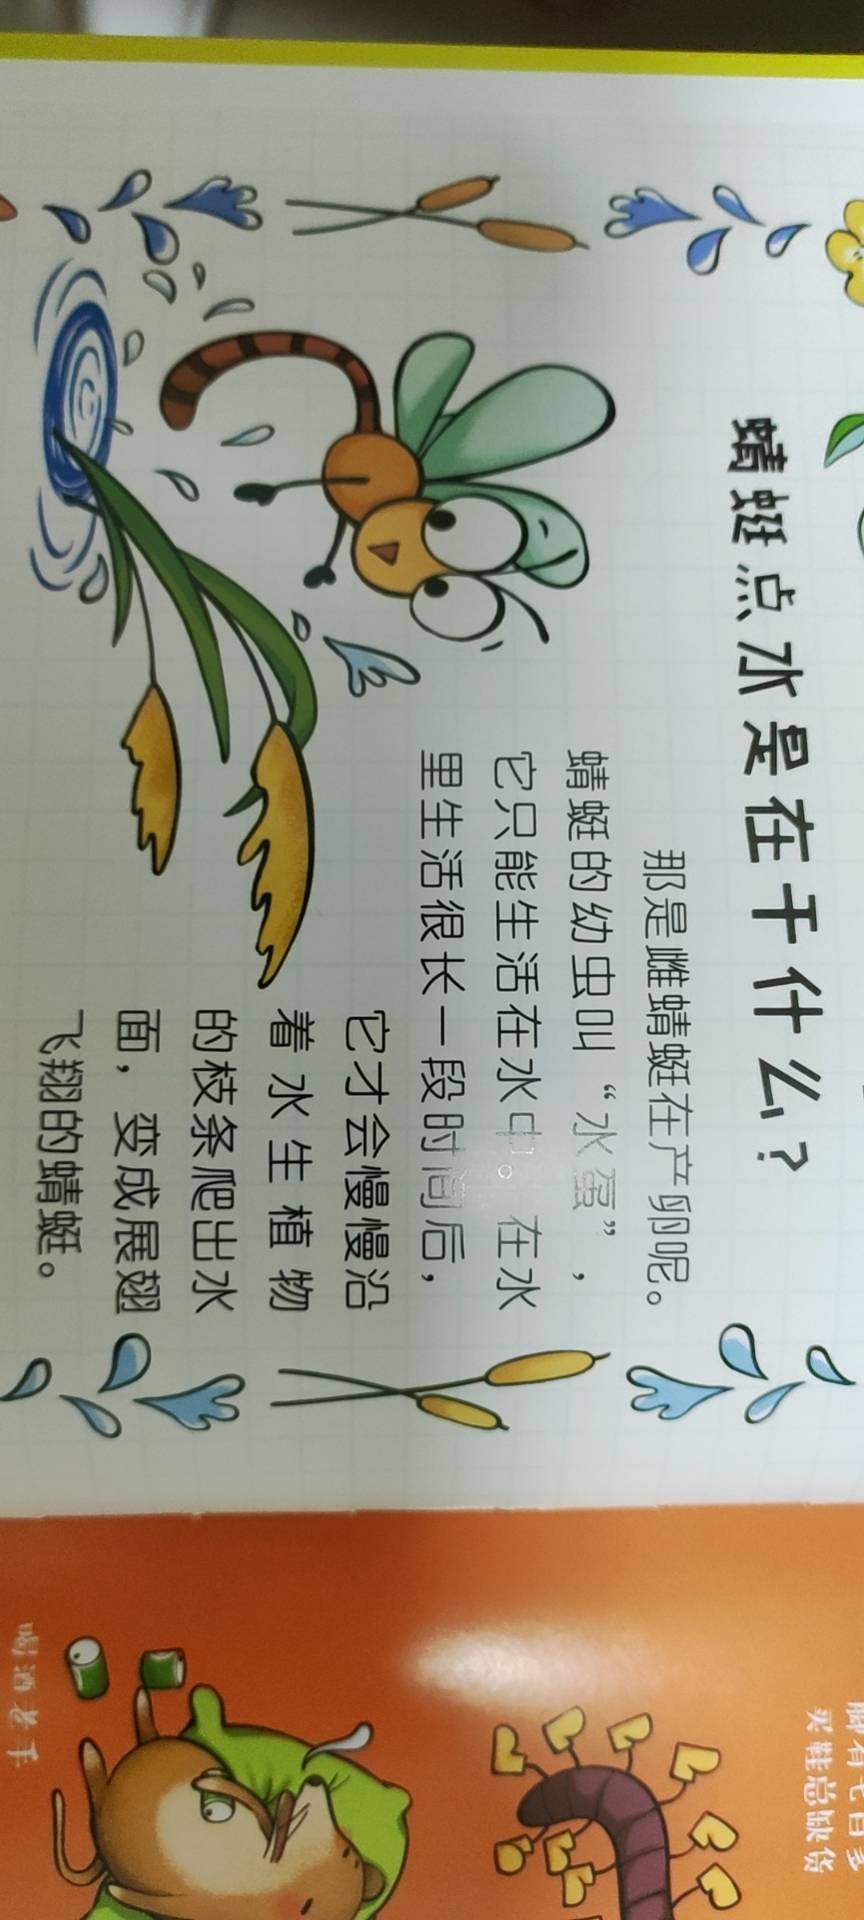 蜻蜓点水是在干什么？
那是雌蜻蜓在产卵呢。
蜻蜓的幼虫叫“水虿”，
它只能生活在水中。在水
里生活很长一段时间后，
它才会慢慢沿
着水生植物
的枝条爬出水
面，变成展翅
飞翔的蜻蜓。
买鞋总缺货
喝酒老手